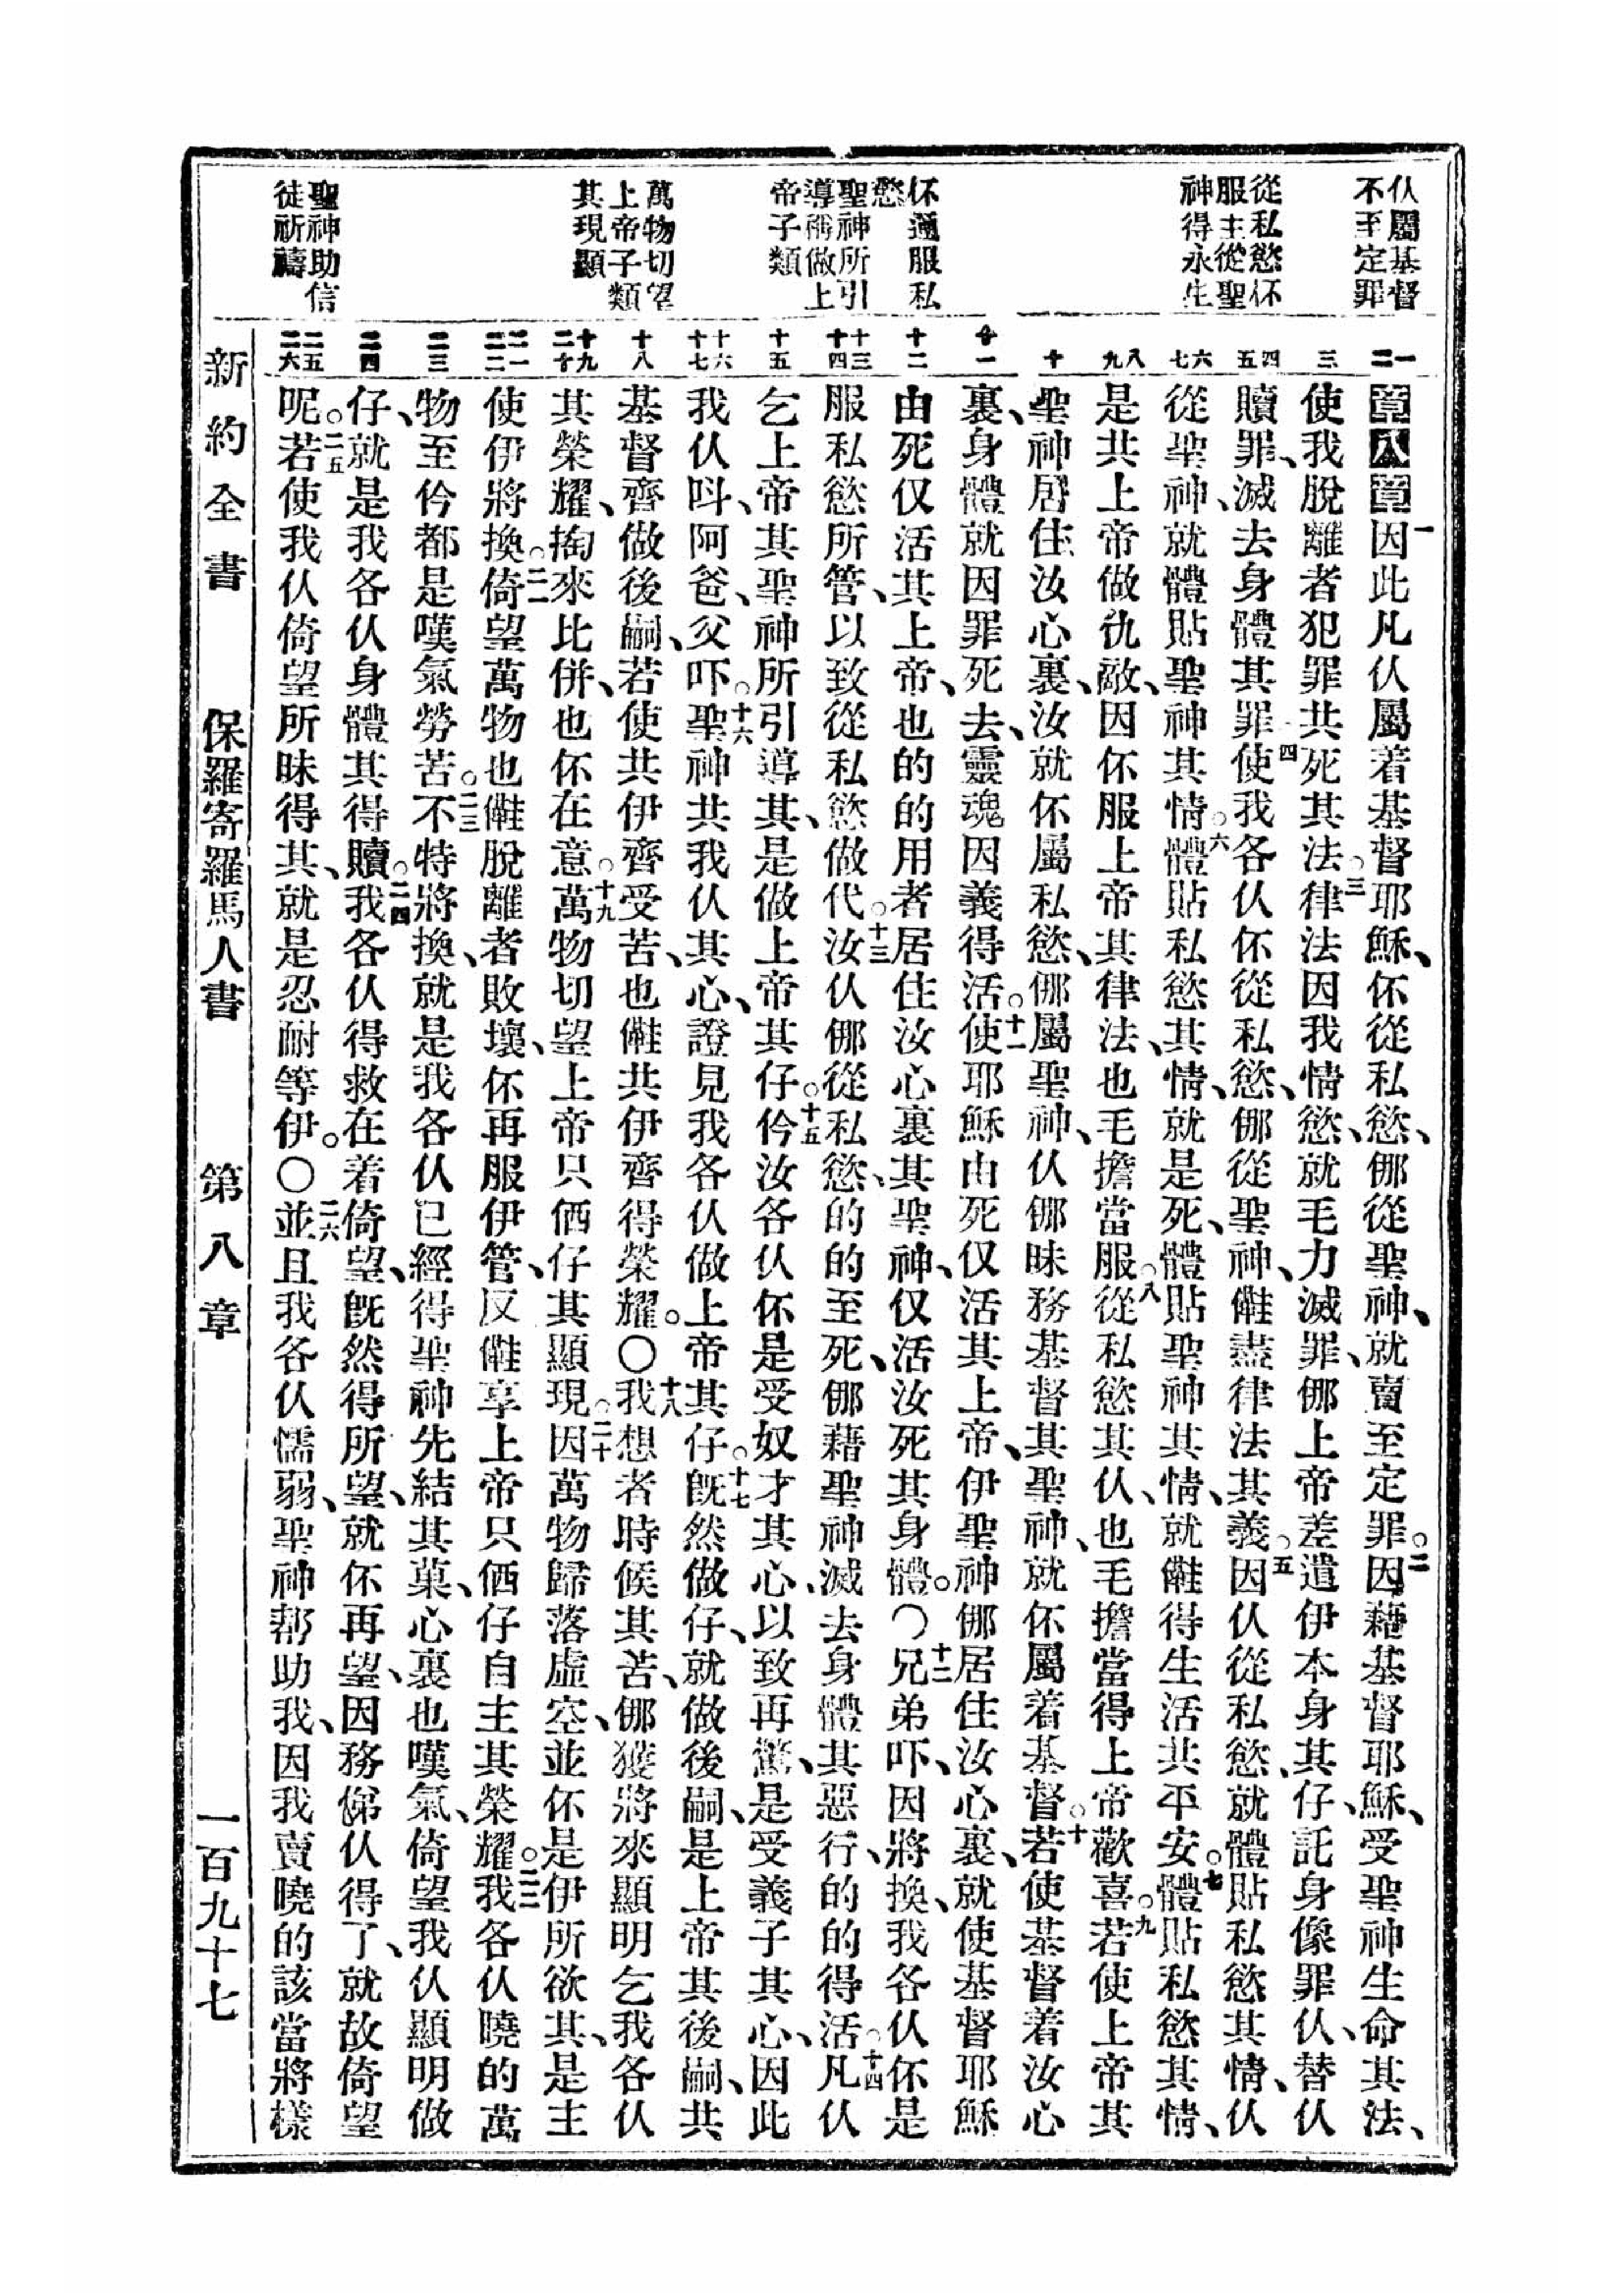 仈屬基督
不至定罪
從私慾伓
服主從聖
神得永生
伓通服私
慾
聖神所引
導稱做上
帝子類
萬物切望
上帝子類
其現顯
聖神助信
徒祈禱
一
二
三
四
五
六
七
八
九
十
十一
十二
十三
十四
十五
十六
十七
十八
十九
二十
二一
二二
二三
二四
二五
二六
第八章一因此凡仈屬着基督耶穌、伓從私慾、㑚從聖神、就賣至定罪。二因藉基督耶穌、受聖神生命其法、
使我脫離者犯罪共死其法。三律法因我情慾、就毛力滅罪、㑚上帝差遣伊本身其仔、託身像罪仈、替仈
贖罪、滅去身體其罪四使我各仈伓從私慾、㑚從聖神、㒕盡律法其義。五因仈從私慾、就體貼私慾其情、仈
從聖神、就體貼聖神其情。六體貼私慾其情、就是死、體貼聖神其情、就㒕得生活共平安。七體貼私慾其情、
是共上帝做仇敵、因伓服上帝其律法、也毛擔當服。八從私慾其仈、也毛擔當得上帝歡喜。九若使上帝其
聖神居住汝心裏、汝就伓屬私慾、㑚屬聖神、仈㑚昧務基督其聖神、就伓屬着基督。十若使基督着汝心
裏、身體就因罪死去、靈魂因義得活。十一使耶穌由死仅活其上帝、伊聖神㑚居住汝心裏、就使基督耶穌
由死仅活其上帝、也的的用者居住汝心裏其聖神、仅活汝死其身體。〇十二兄弟吓、因將換、我各仈伓是
服私慾所管、以致從私慾做代。十三汝仈㑚從私慾、的的至死、㑚藉聖神滅去身體其惡行、的的得活。十四凡仈
乞上帝其聖神所引導其、是做上帝其仔。十五仱汝各仈伓是受奴才其心、以致再驚、是受義子其心、因此
我仈呌、阿爸、父吓。十六聖神共我仈其心、證見我各仈做上帝其仔。十七旣然做仔、就做後嗣、是上帝其後嗣、共
基督齊做後嗣、若使共伊齊受苦、也㒕共伊齊得榮耀。〇十八我想者時候其苦、㑚獲將來顯明乞我各仈
其榮耀、掏來比併、也伓在意。十九萬物切望上帝只㑚仔其顯現。二十因萬物歸落虛空、並伓是伊所欲其、是主
使伊將換。二一倚望萬物也㒕脫離者敗壞、伓再服伊管、反㒕享上帝只㑚仔自主其榮耀。二二我各仈曉的萬
物至仱都是嘆氣勞苦。二三不特將換、就是我各仈已經得聖神先結其菓、心裏也嘆氣、倚望我仈顯明做
仔、就是我各仈身體其得贖。二四我各仈得救在着倚望、旣然得所望、就伓再望、因務㑚仈得了、就故倚望
呢。二五若使我仈倚望所昧得其、就是忍耐等伊。〇二六並且我各仈懦弱、聖神幫助我、因我賣曉的該當將樣
新約全書　保羅寄羅馬人書　第八章　一百九十七